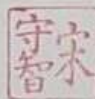 宋
守智